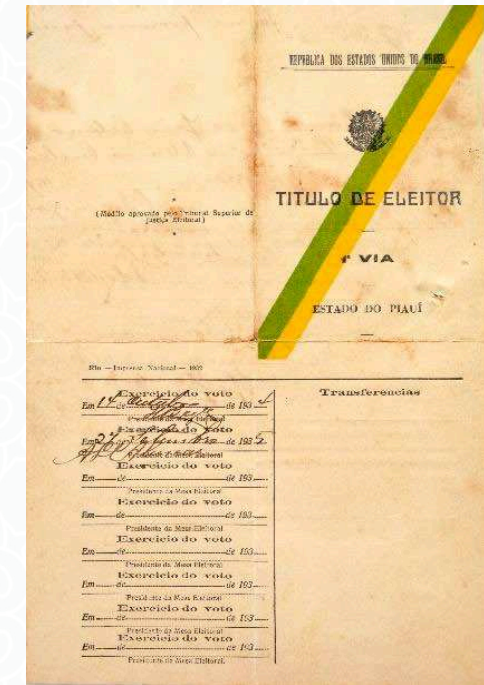 REPUBLICA DOS ESTADOS UNIDOS DO BRASIL
TITULO DE ELEITOR
1ª VIA
ESTADO DO PIAUÍ
(Modêlo aprovado pelo Tribunal Superior de
Justiça Eleitoral)
Rio — Imprensa Nacional — 1932
Exercicio do voto
Em 14 de Outubro de 1934
Presidente da Mesa Eleitoral
Exercicio do voto
Em de de 1935
Presidente da Mesa Eleitoral
Exercicio do voto
Em de de 193
Presidente da Mesa Eleitoral
Exercicio do voto
Em de de 193
Presidente da Mesa Eleitoral
Exercicio do voto
Em de de 193
Presidente da Mesa Eleitoral
Exercicio do voto
Em de de 193
Presidente da Mesa Eleitoral
Exercicio do voto
Em de de 193
Presidente da Mesa Eleitoral
Exercicio do voto
Em de de 193
Presidente da Mesa Eleitoral.
Transferencias